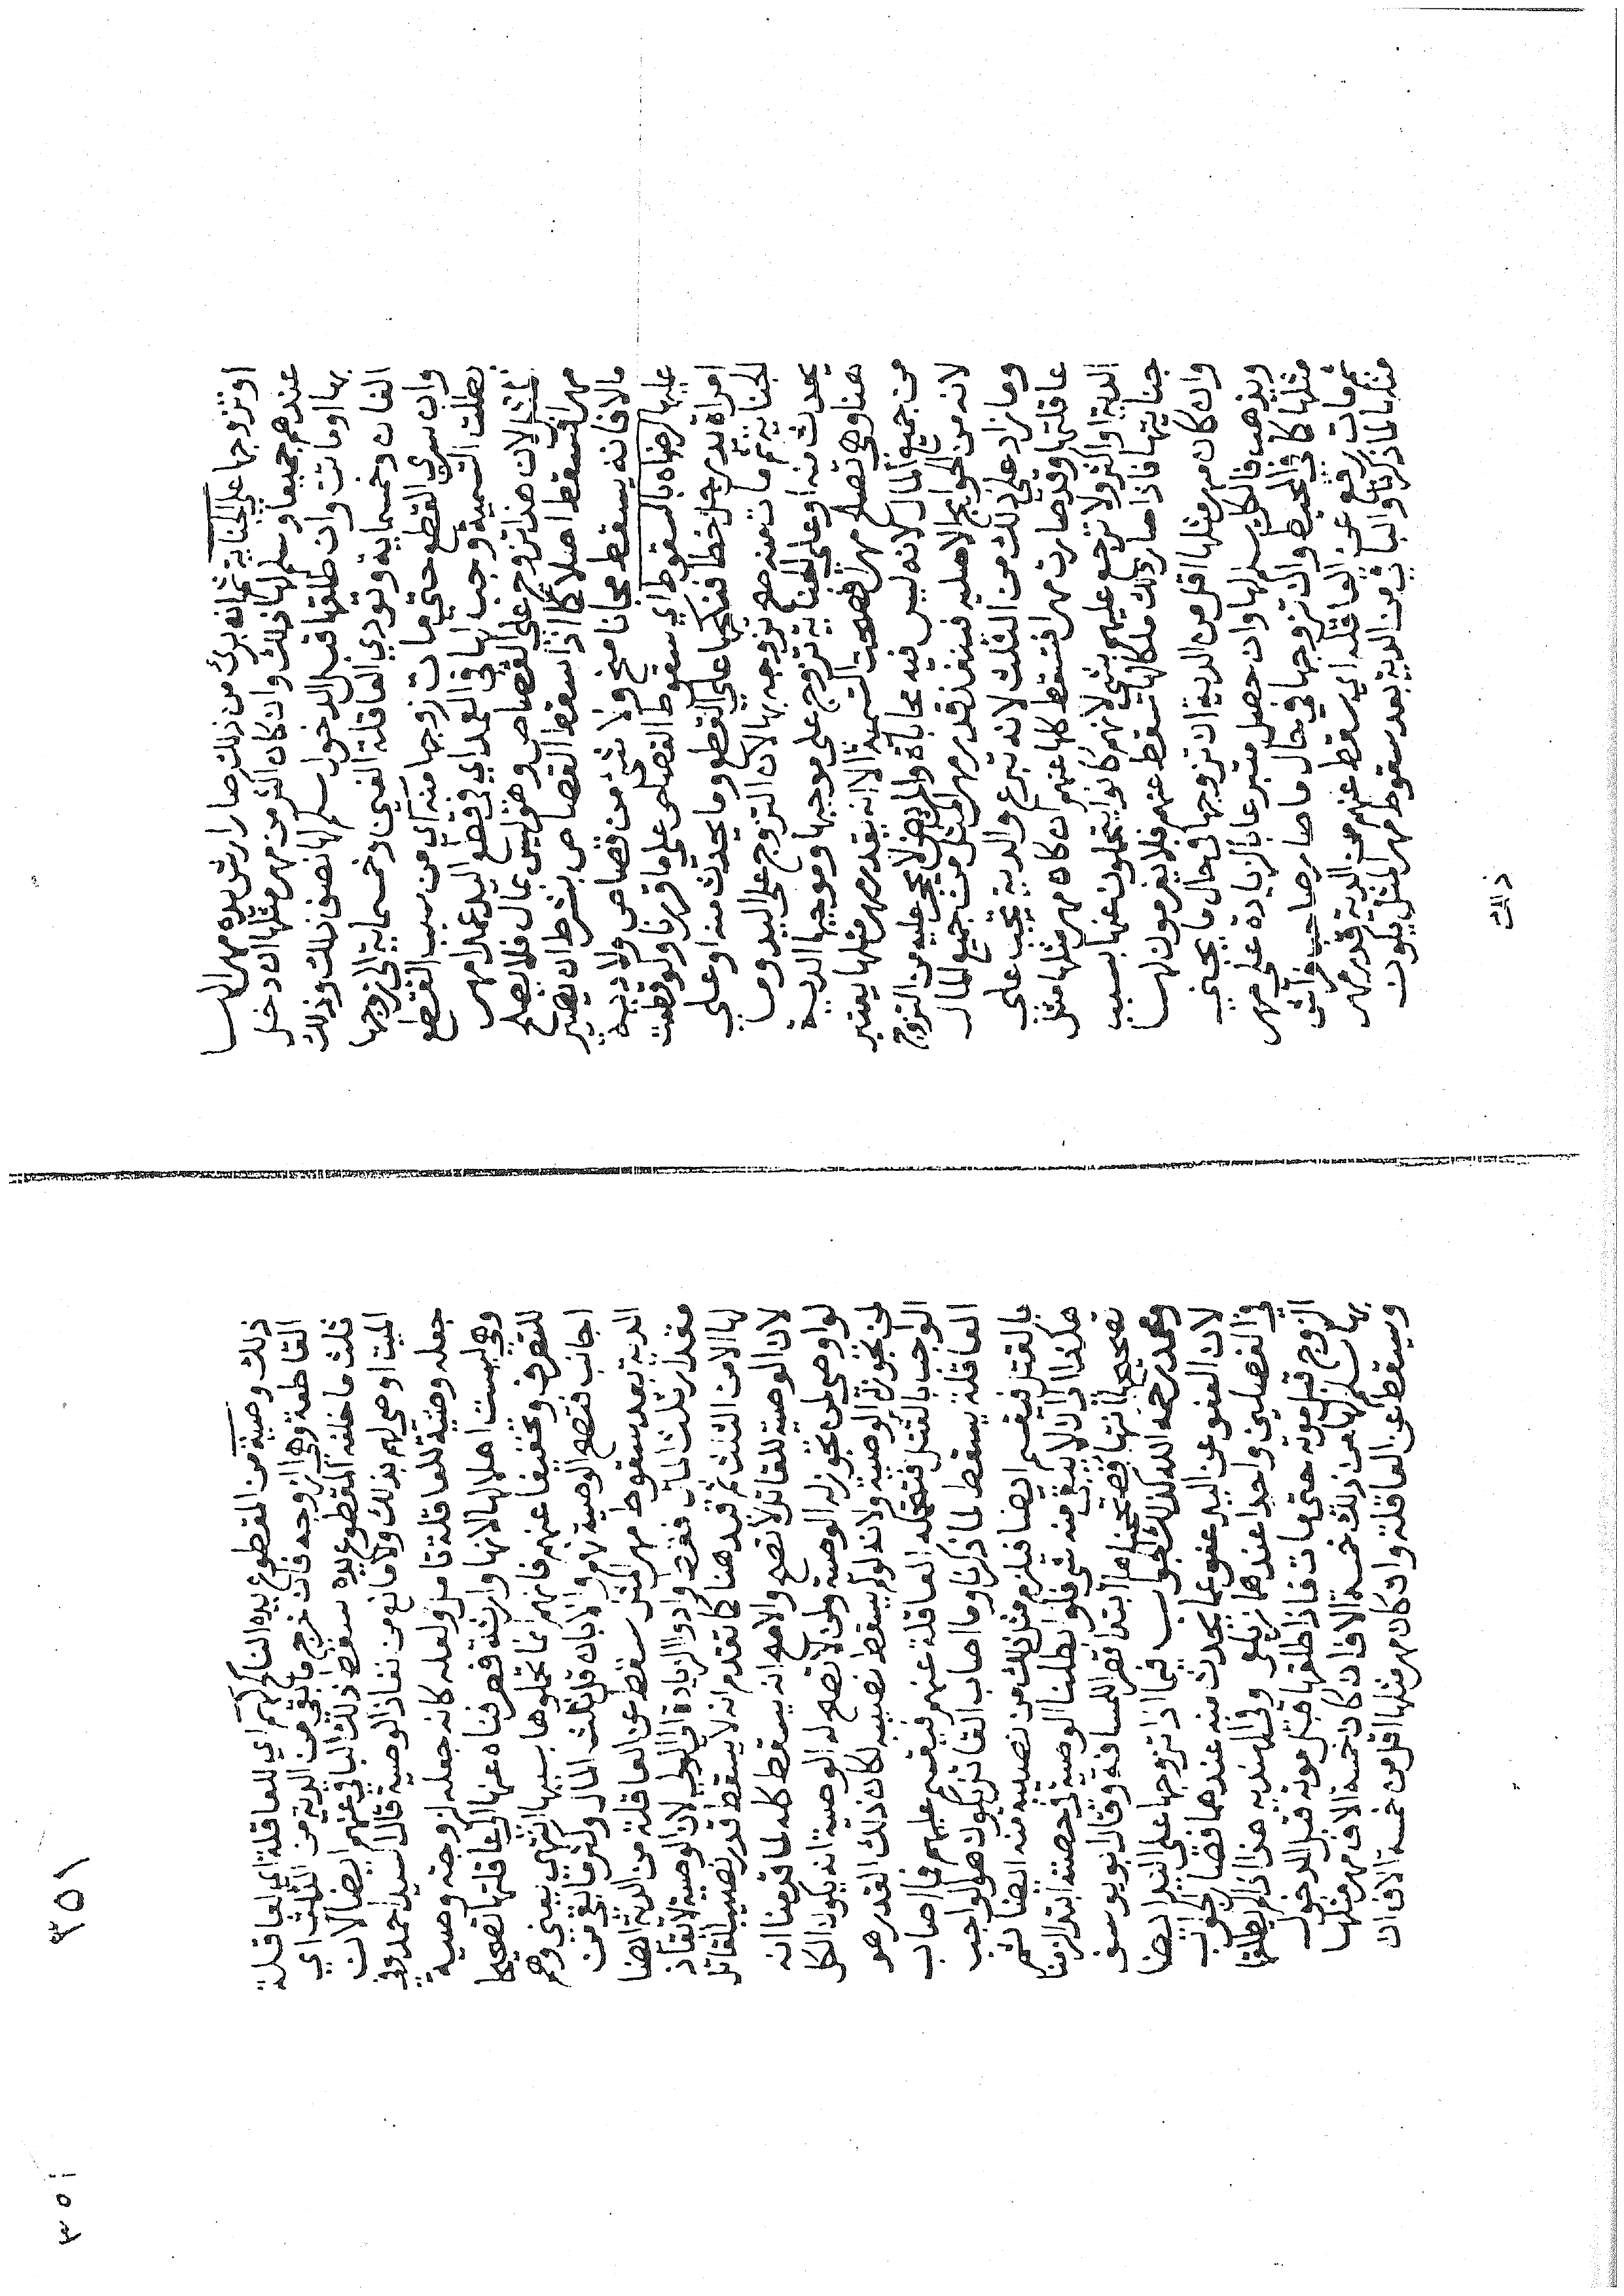 او تزوجها على الجناية ثم انه برئ من ذلك صار ارش يده مهرا لها
عندهم جميعا وسلم لها ذلك وان كان اكثر من مهر مثلها ان دخل
بها او ماتت وان طلقها قبل الدخول سلم لها نصف ذلك وذلك
الفان وخمسماية وتودي العاقلة الفين وخمسماية الى زوجها
وان سري القطع حتي مات زوجها منه اي من سبب القطع
بطلت التسمية ووجب لها في العمد اي في قطع اليد عمدا مهر
مثلها لان هذا تزوج علي القصاص وهو ليس بمال فلا يصلح
مهرا فسقط اصلا كما اذا سقط القصاص بشرط ان يصير
مالا فانه يسقط مجانا منح ولا شي من قصاص ولا دية
عليها لرضاه بالسقوط اي سقوط القصاص علي ما قررنا ولو قطعت
امراة يد رجل خطا فنكحها علي القطع وما يحدث منه او علي
الجناية ثم مات منه صح تزوجه بها لان التزوج علي اليد وما
يحدث منه او علي الجناية تزوج علي موجبها وموجبها الدية
هنا وهي تصلح مهرا فصحت التسمية الا انه بقدر مهر مثلها يعتبر
من جميع المال لانه ليس فيه محاباة والمريض لا يحجر عليه من التزوج
لانه من الحوايج الاصلية فينفذ قدر مهر المثل من جميع المال
وما زاد علي ذلك من الثلث لانه تبرع والدية تجب علي
عاقلتها وقد صارت مهرا فتسقط كلها عنهم ان كان مهر مثلها مثل
الدية او اكثر ولا ترجع عليهم بشي لانهم كانوا يتحملون عنها بسبب
جنايتها فاذا صار ذلك ملكا لها سقط عنهم فلا يغرمون لها
وان كان مهر مثلها اقل من الدية ان تزوجها في حال ما يجئ
ويذهب فالكل يسلم لها وان حصل متبرعا بالزيادة علي مهر
مثلها كما في المحيط وان تزوجها في حال ما صار صاحب فراش
ثم مات رفع عن العاقلة اي سقط عنهم من الدية قدر مهر
مثلها لما ذكرنا والباقي من الدية بعد سقوط مهر المثل يكون
ذلك
٣٥١
ذلك وصية من المقطوع يده الناكح لهم اي للعاقلة اي لعاقلة
القاطعة وهي الزوجه فان خرج ما بقي من الدية من الثلث اي
ثلث ما خلفه المقطوع يده سقط ذلك الباقي عنهم ايضا لان
الميت اوصي لهم بذلك ولا مانع من نفاذ الوصية قال السيد احمد وفي
جعله وصية للعاقلة تامل ولعله كانه جعله لزوجته وصية
وهي ليست اهلا لها لانها وارثة فصرفناه عنها الي عاقلتها تصحيحا
للتصرف وتخفيفا عنهم فانهم انما تحملوها بسببها انتهي يعني وهم
اجانب فتصح الوصية لهم والا بان قل ثلث المال وكثر ما بقي من
الدية بعد سقوط مهر المثل سقط عن العاقلة من الدية ايضا
مقدار ثلث المال فقط وادوا الزيادة الي الولي لان الوصية لا نفاذ
لها الا من الثلث ثم قيد هنا كما تقدم انه لا يسقط قدر نصيب القاتل
لان الوصية للقاتل لا تصح والاصح انه يسقط كله لما قدمنا انه
لو اوصي لمن تجوز له الوصية ولمن لا تصح له الوصية انه يكون الكل
لمن تجوز له الوصية ولانه لو لم يسقط نصيبه لكان ذلك القدر هو
الواجب بالقتل فتتحمله العاقلة عنهم فيقسم عليهم فما اصاب
العاقلة يسقط لما ذكرنا وما اصاب القاتل يكون هو الواجب
بالقتل فيقسم ايضا فيلزم مثل ذلك من نصيبه منه ايضا ثم
هكذا الي ان لا يبقي منه شي فلو ابطلنا الوصية في حصته ابتدا لزمنا
تصحيحها انتها فصححناها ابتدا قصرا للمسافة وقال ابو يوسف
ومحمد رحمه الله كذلك الجواب فيما اذا تزوجها علي اليد ايضا
لان العفو عن اليد عفو عما يحدث منه عندهما فصار الجواب
في الفصلين واحدا عندهما زيلعي وفي الهندية هذا اذا لم يطلقها
الزوج قبل موته حتي مات فاذا طلقها قبل موته قبل الدخول
بها سلم لها من ذلك خمسة الاف ان كان خمسة الاف مهر مثلها
ويسقط عن العاقلة وان كان مهر مثلها اقل من خمسة الاف ان
٣٥١